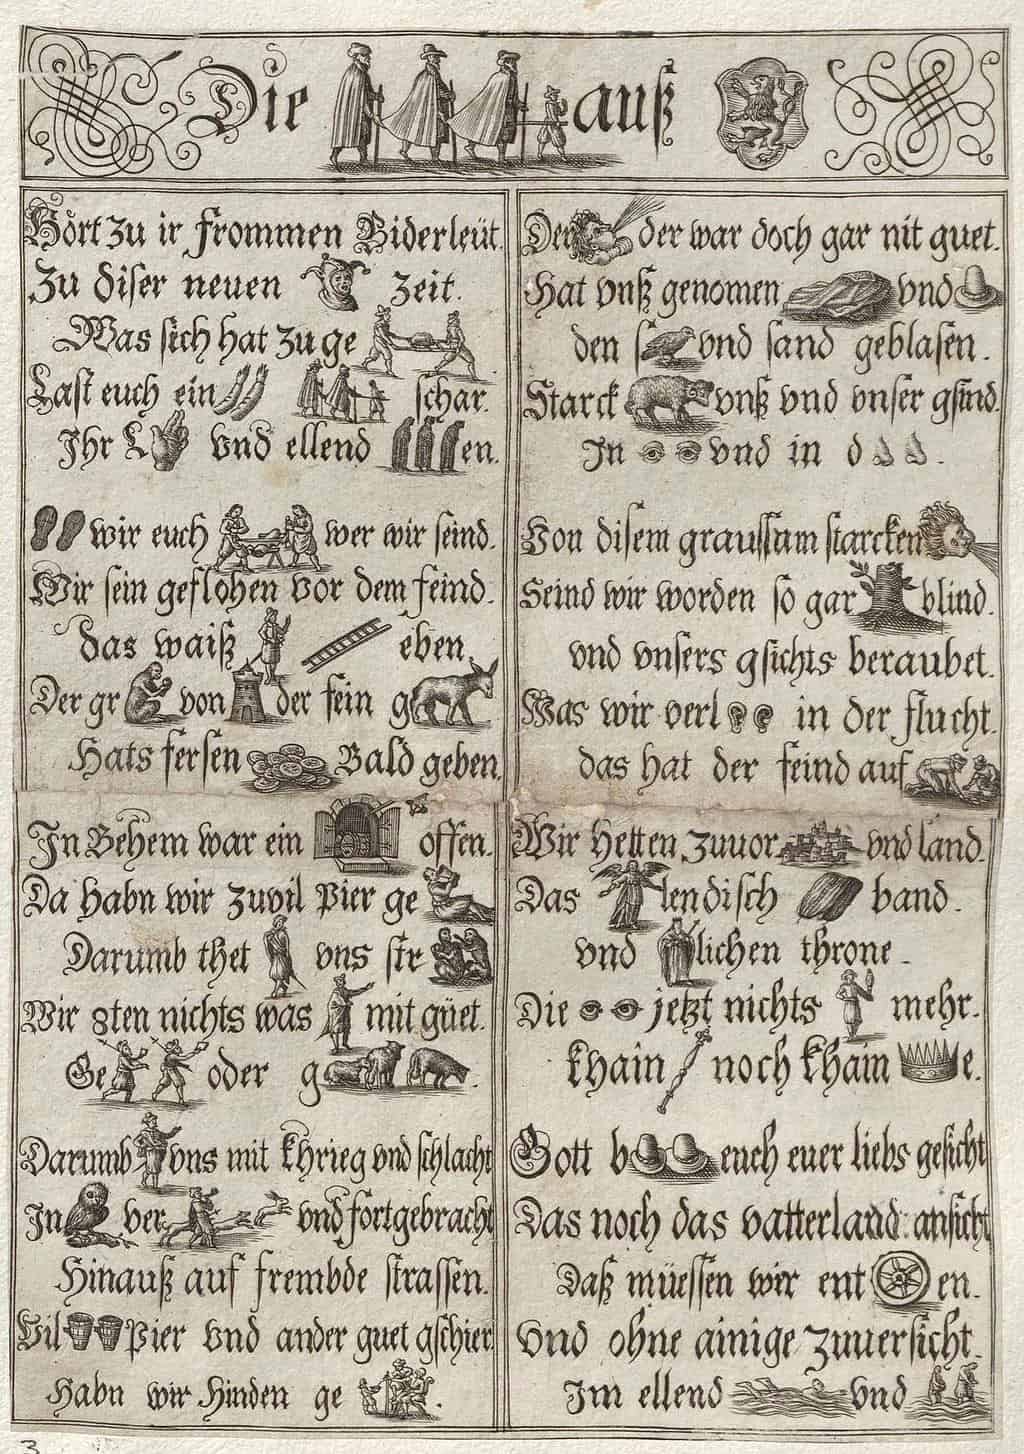 Die auß
Hört zu ir frommen Biderleüt.
Zu diser neuen zeit.
Was sich hat zu ge
Last euch ein schar.
Ihr L vnd ellend en.
wir euch wer wir seind.
Wir sein geflohen vor dem feind.
das waiß eben.
Der gr von der fein g
Hats fersen Bald geben.
In Behem war ein offen.
Da habn wir zuvil Pier ge
Darumb thet vns str
Wir 8ten nichts was mit güet.
Ge oder g
Darumb vns mit khrieg vnd schlacht
In ver vnd fortgebracht
Hinauß auf frembde strassen.
Vil Pier vnd ander guet gschier
Habn wir hinden ge
Der der war doch gar nit guet.
Hat vnß genomen vnd
den s vnd sand geblasen.
Starck vnß vnd vnser gsind.
In vnd in d
Von disem graussam starcken
Seind wir worden so gar blind.
vnd vnsers gsichts beraubet.
Was wir verl in der flucht.
das hat der feind auf
Wir hetten zuuor vnd land.
Das lendisch band.
vnd lichen throne.
Die jetzt nichts mehr.
khain noch kham e.
Gott b euch euer liebs gesicht
Das noch das vatterland ansicht
Daß müessen wir ent en.
Vnd ohne ainige zuuersicht.
Im ellend vnd
3